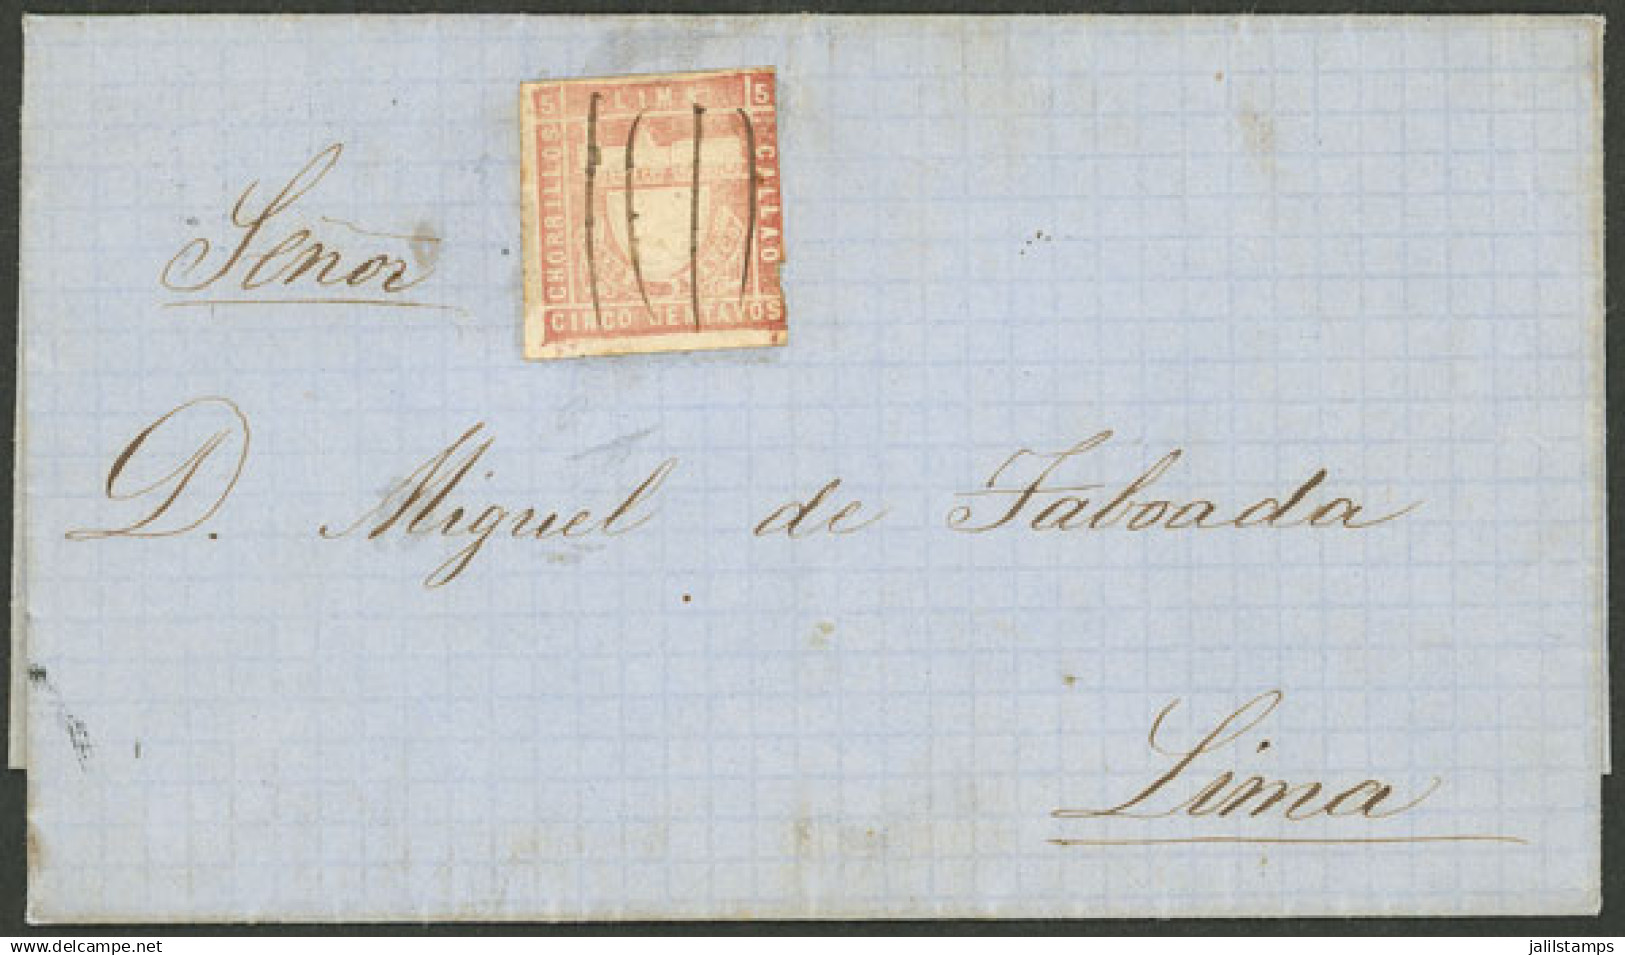 5 LIMA 5
CHORRILLOS
CALLAO
CINCO CENTAVOS
Señor
D. Miguel de Taboada
Lima
delcampe.net
jalilstamps